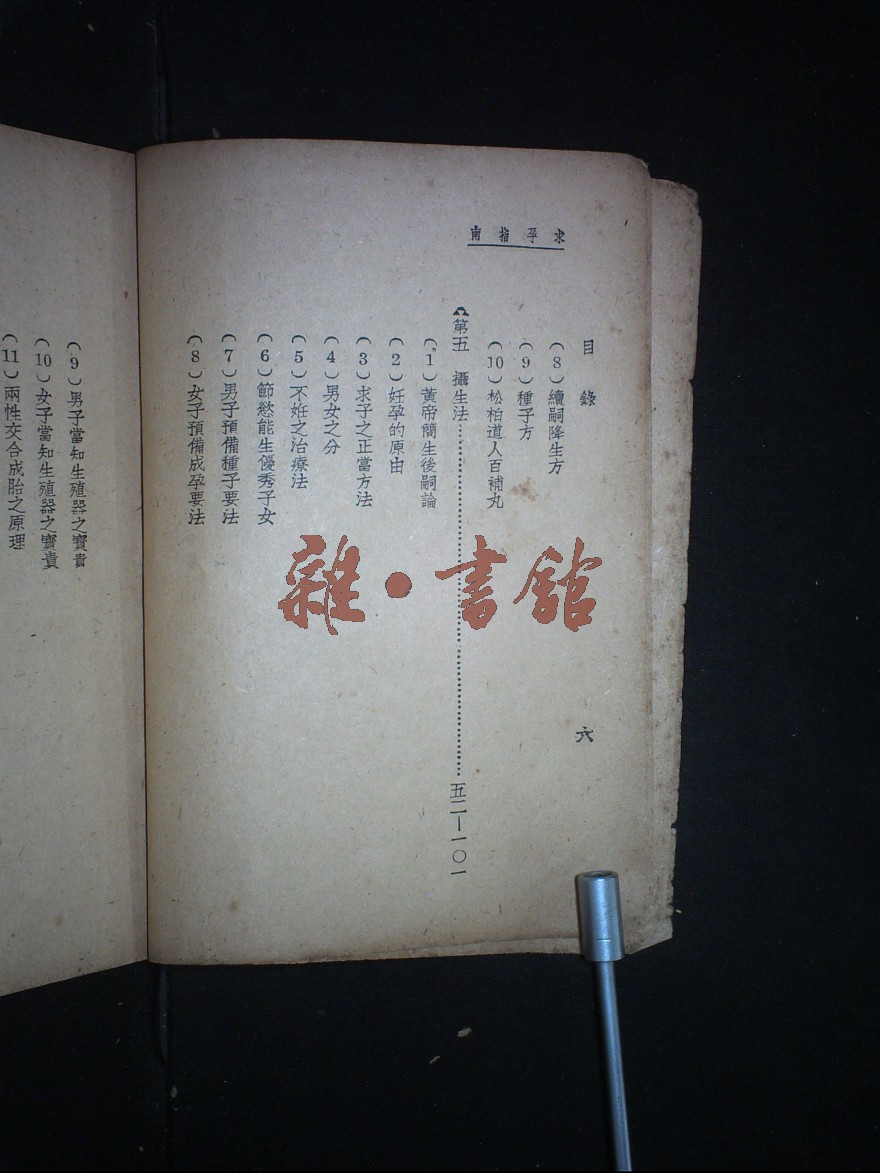 求孕指南
目錄
六
(8)續嗣降生方
(9)種子方
(10)松柏道人百補丸
第五 攝生法……五二—一〇一
(1)黃帝簡生後嗣論
(2)妊孕的原由
(3)求子之正當方法
(4)男女之分
(5)不妊之治療法
(6)節慾能生優秀子女
(7)男子預備種子要法
(8)女子預備成孕要法
(9)男子當知生殖器之寶貴
(10)女子當知生殖器之寶貴
(11)兩性交合成胎之原理
雜·書館